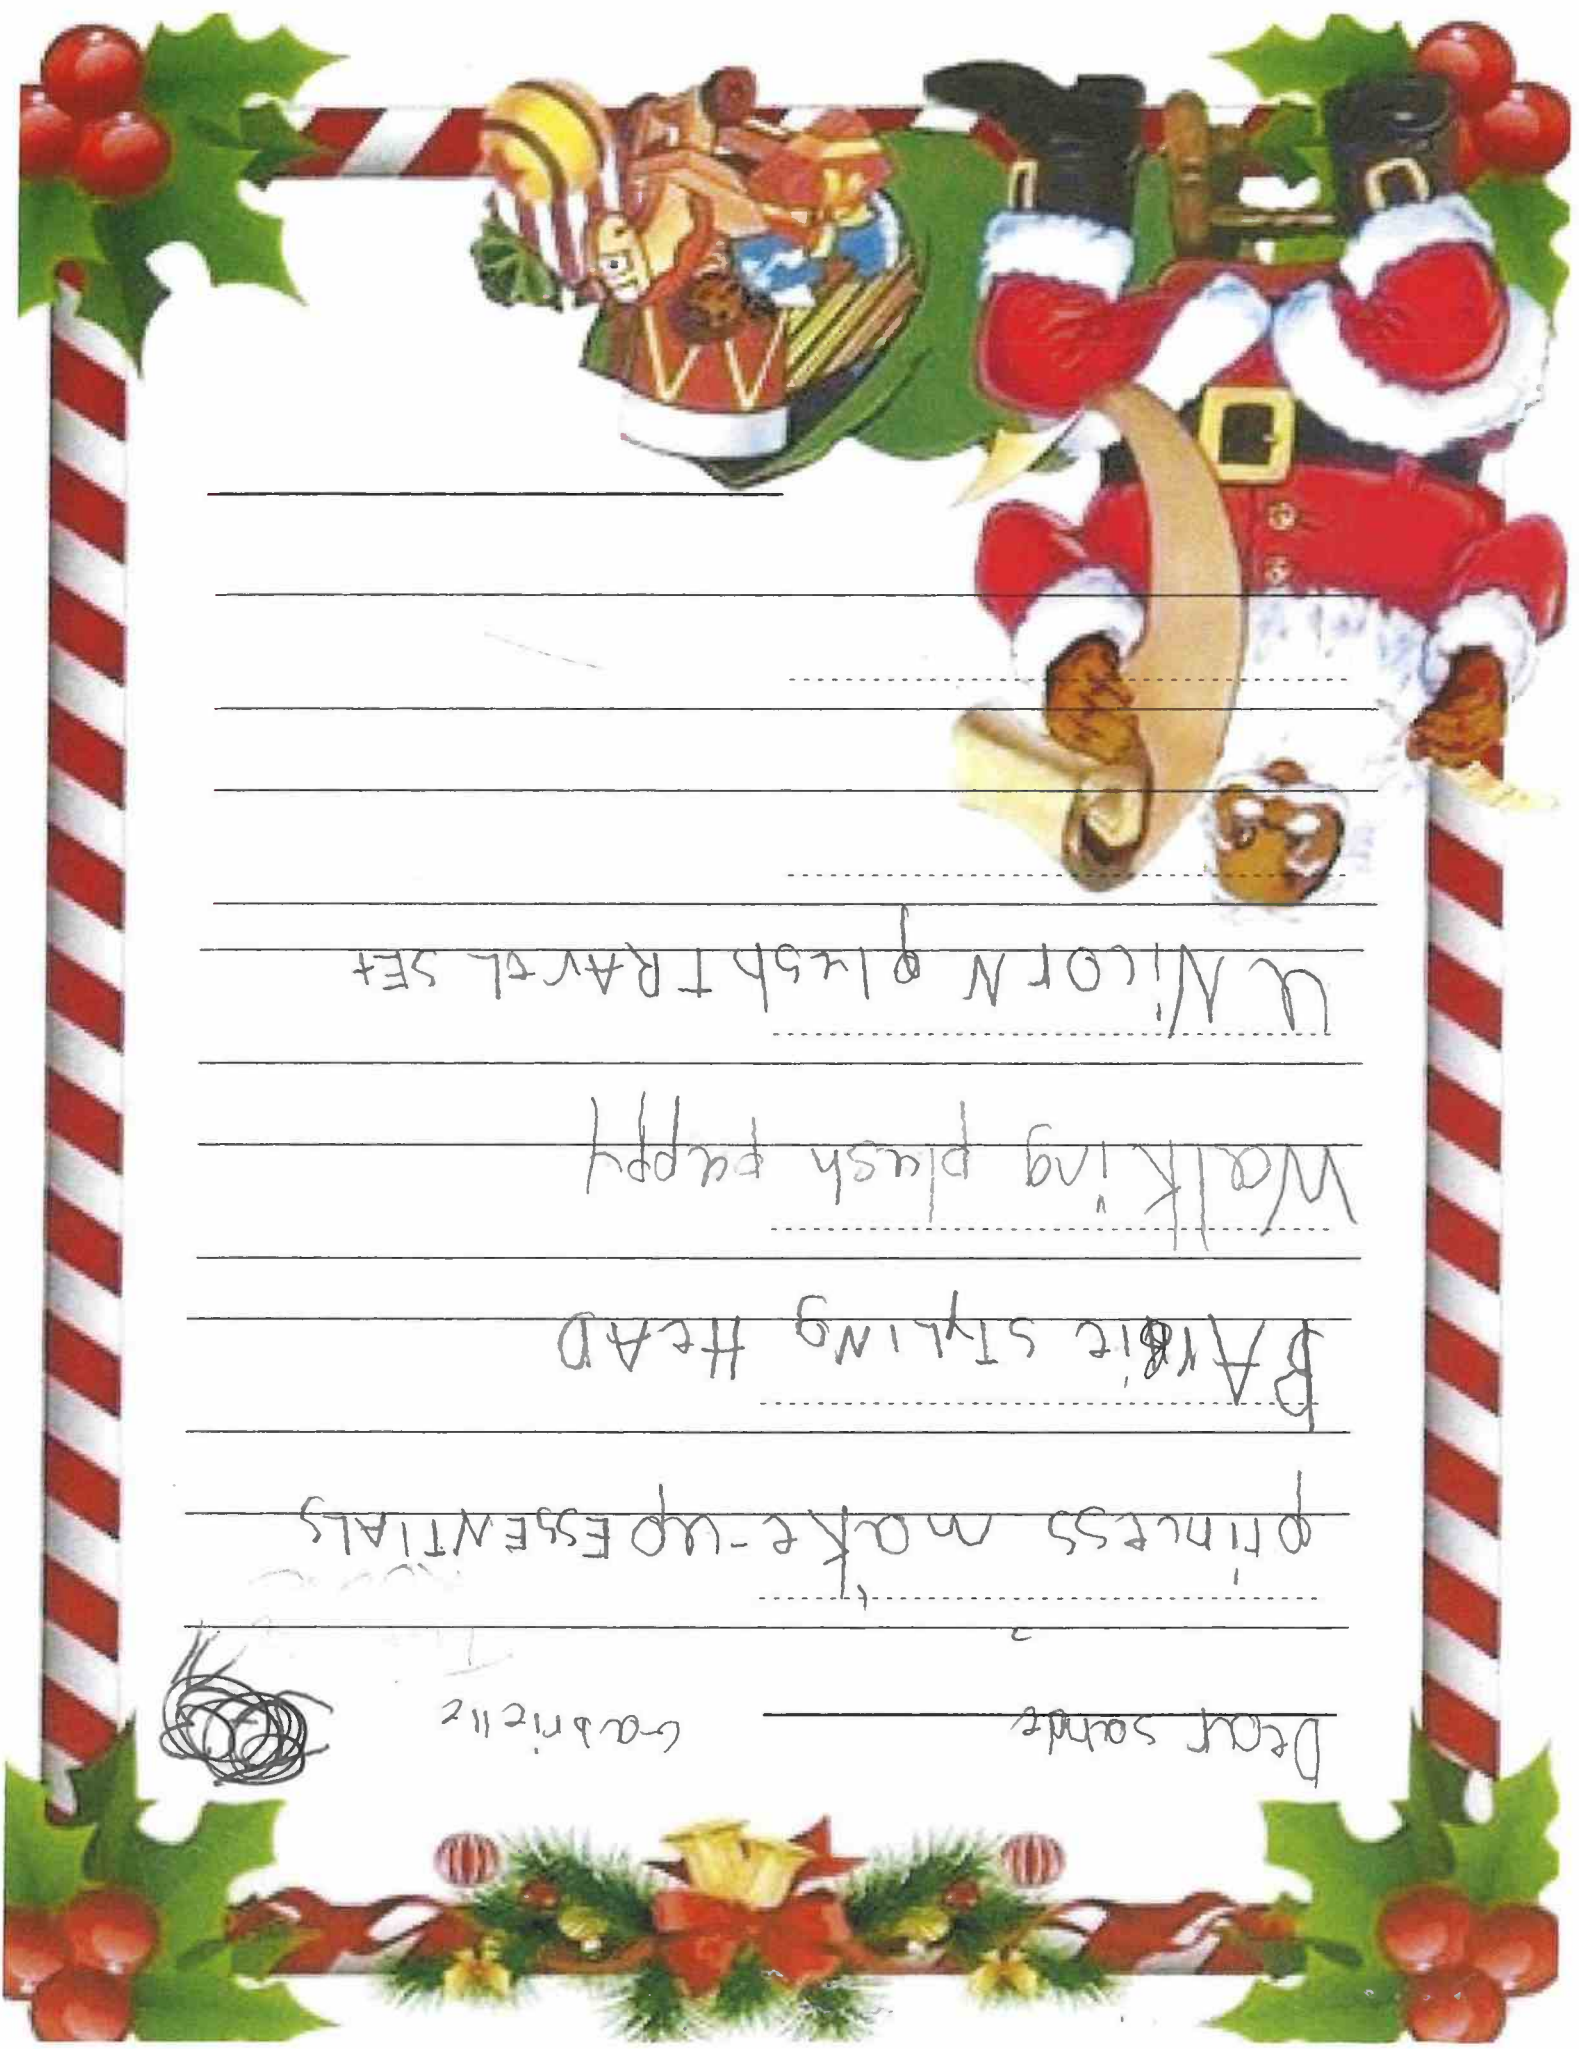 Dear sante Gabrielle
princess make-up ESSENTIALS
BArbie STyLING HeAD
Walking plush puppy
uNicorN plush TRAVEL SEt